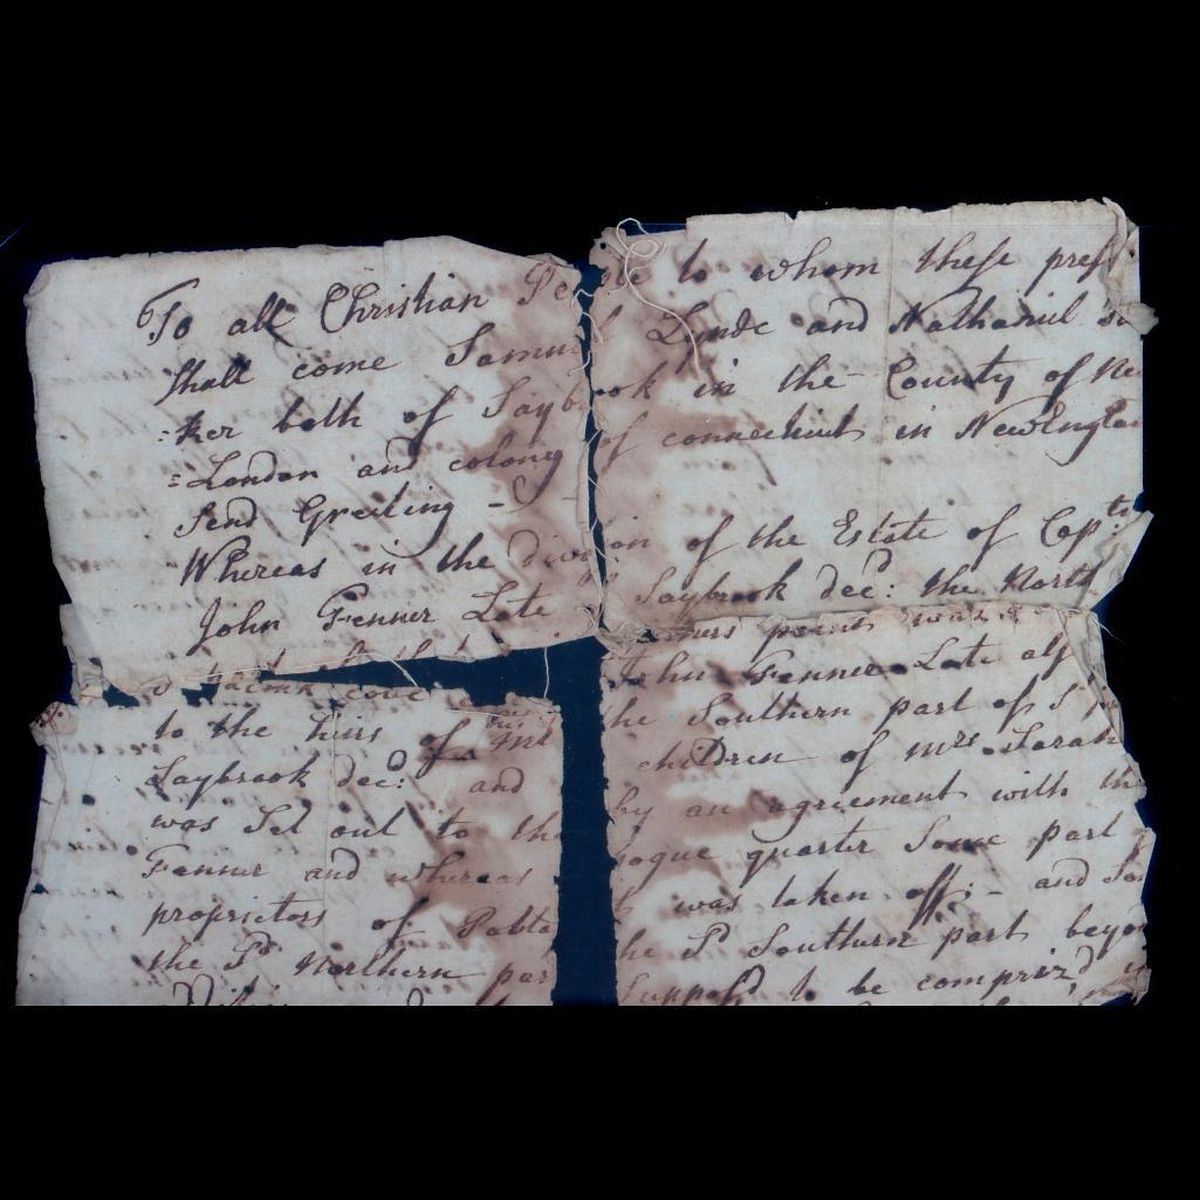 To all Christian People to whom these pres
Shall come Samuel Lynde and Nathaniel
:ker both of Saybrook in the County of Ne
=London and colony of connecticut in NewEnglan
Send Greeting -
Whereas in the division of the Estate of Capt:
John Fenner Late Saybrook decd: the North
ners point
cove John Fenner Late of
to the heirs of Mr the Southern part of Sd
Saybrook decd: and children of Mrs Sarah
was Set out to the by an agreement with the
Fenner and whereas ogue quarter Some part
proprietors of Pabta was taken off: - and
the Sd Northern par he Sd Southern part beyon
Supposd to be comprizd